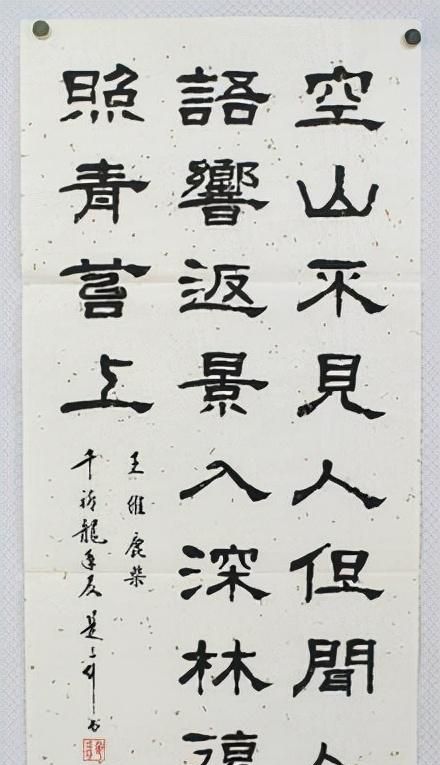 空山不見人但聞人
語響返景入深林復
照青苔上
王維鹿柴
千禧龍年夏